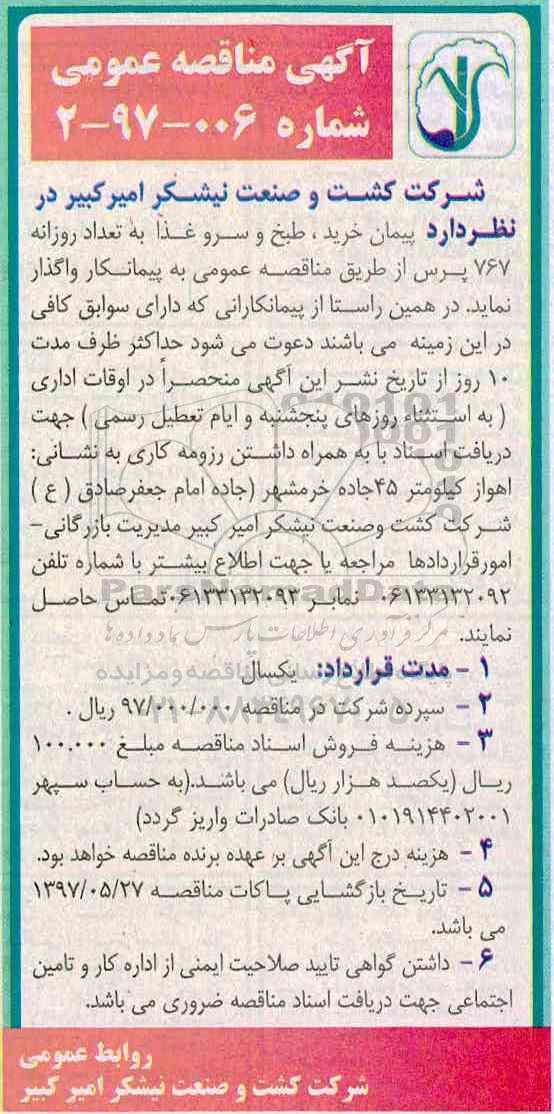 آگهی مناقصه عمومی
شماره ۰۰۶-۹۷-۲
شرکت کشت و صنعت نیشکر امیرکبیر در
نظردارد پیمان خرید ، طبخ و سرو غذا به تعداد روزانه
۷۶۷ پرس از طریق مناقصه عمومی به پیمانکار واگذار
نماید. در همین راستا از پیمانکارانی که دارای سوابق کافی
در این زمینه می باشند دعوت می شود حداکثر ظرف مدت
۱۰ روز از تاریخ نشر این آگهی منحصراً در اوقات اداری
( به استثناء روزهای پنجشنبه و ایام تعطیل رسمی ) جهت
دریافت اسناد با به همراه داشتن رزومه کاری به نشانی:
اهواز کیلومتر ۴۵جاده خرمشهر (جاده امام جعفرصادق ( ع )
شرکت کشت وصنعت نیشکر امیر کبیر مدیریت بازرگانی-
امورقراردادها مراجعه یا جهت اطلاع بیشتر با شماره تلفن
۰۶۱۳۳۱۳۲۰۹۲ نمابر ۰۶۱۳۳۱۳۲۰۹۳تماس حاصل
نمایند.
۱ - مدت قرارداد: یکسال
۲ - سپرده شرکت در مناقصه ۹۷/۰۰۰/۰۰۰ ریال .
۳ - هزینه فروش اسناد مناقصه مبلغ ۱۰۰.۰۰۰
ریال (یکصد هزار ریال) می باشند.(به حساب سپهر
۰۱۰۱۹۱۴۴۰۲۰۰۱ بانک صادرات واریز گردد)
۴ - هزینه درج این آگهی بر عهده برنده مناقصه خواهد بود.
۵ - تاریخ بازگشایی پاکات مناقصه ۱۳۹۷/۰۵/۲۷
می باشد.
۶ - داشتن گواهی تایید صلاحیت ایمنی از اداره کار و تامین
اجتماعی جهت دریافت اسناد مناقصه ضروری می باشد.
روابط عمومی
شرکت کشت و صنعت نیشکر امیر کبیر